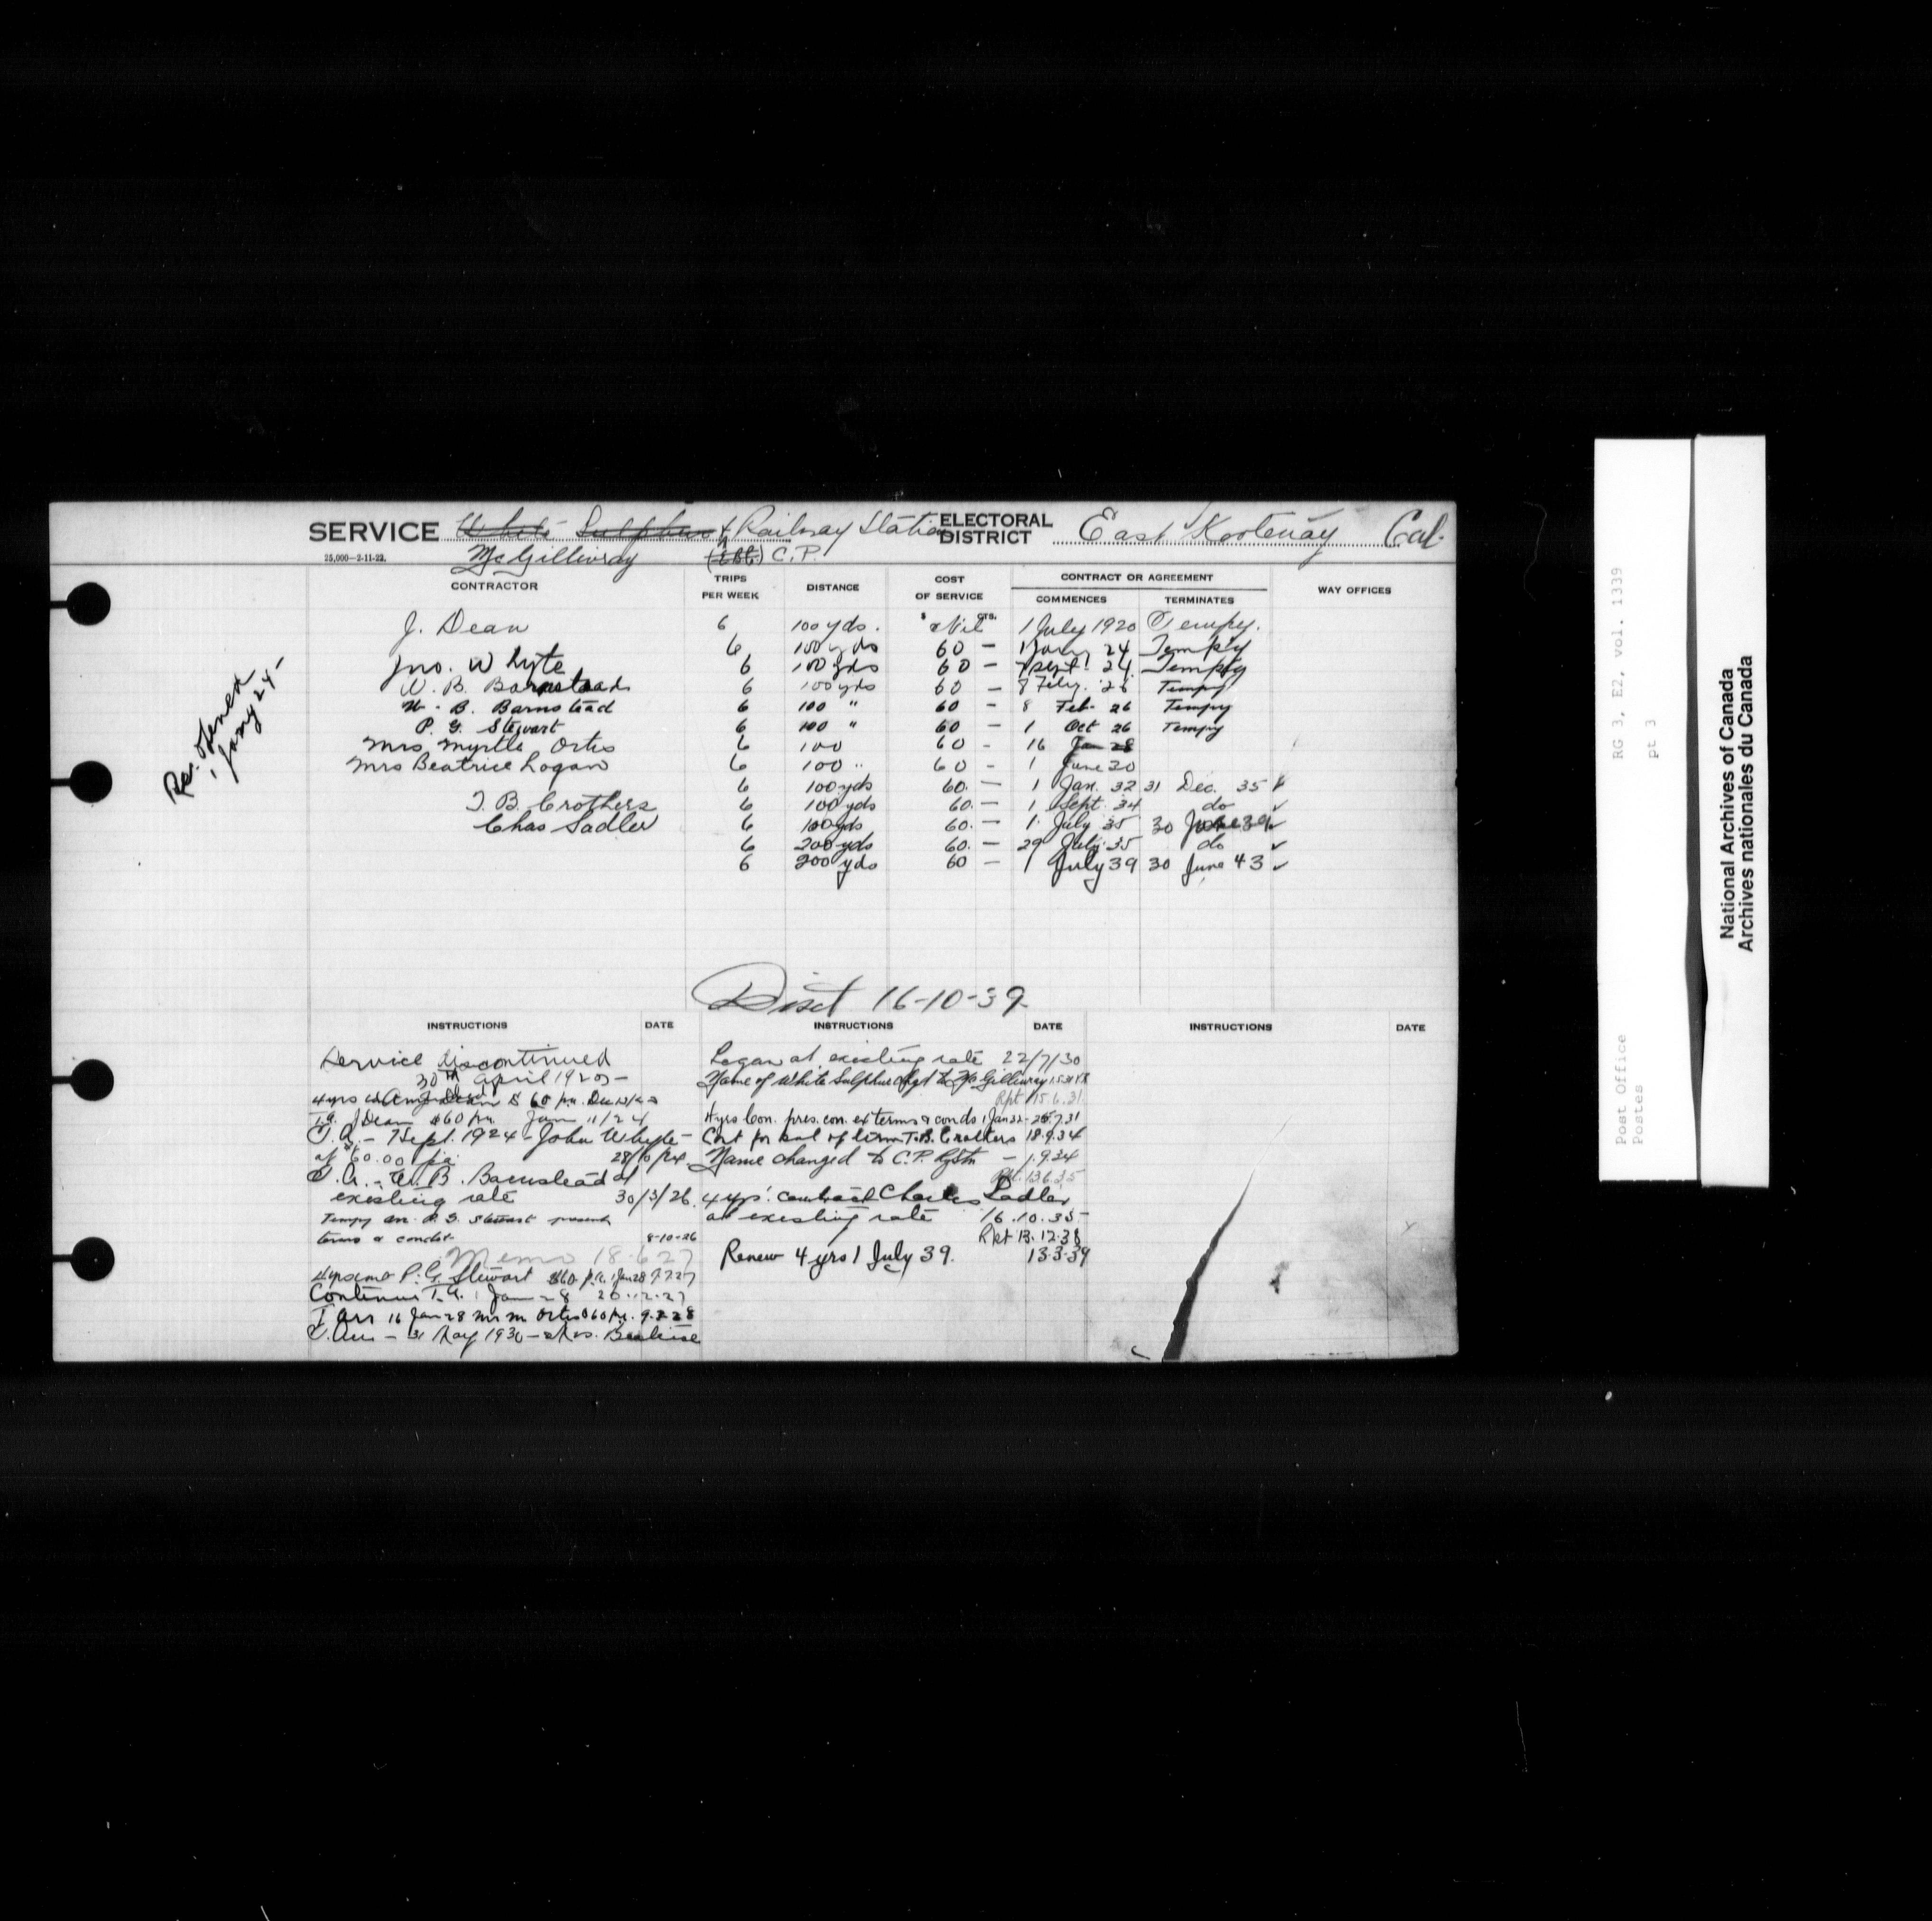 SERVICE White Sulphur & Railway Station ELECTORAL DISTRICT East Kootenay Cal.
25,000—2-11-22. McGillivray C.P.
CONTRACTOR TRIPS PER WEEK DISTANCE COST OF SERVICE CONTRACT OR AGREEMENT COMMENCES TERMINATES WAY OFFICES
$ CTS.
J. Dean 6 100 yds. Nil 1 July 1920 Tempy.
6 100 yds 60 — 1 Jany 24 Tempy
Jno. Whyte 6 100 yds 60 — 7 Sept. 24 Tempy
W. B. Barnstead 6 100 yds 60 — 8 Feby. 26 Tempy
W. B. Barnstead 6 100 " 60 — 8 Feb 26 Tempy
P. G. Stewart 6 100 " 60 — 1 Oct 26 Tempy
Mrs Myrtle Ortis 6 100 60 - 16 Jan 28
Mrs Beatrice Logan 6 100 " 60 - 1 June 30
6 100 yds 60. — 1 Jan. 32 31 Dec. 35 ✓
T. B. Crothers 6 100 yds 60. — 1 Sept. 34 do ✓
Chas Sadler 6 100 yds 60. — 1 July 35 30 June 39 ✓
6 200 yds 60. — 29 July 35 do ✓
6 200 yds 60 — 1 July 39 30 June 43 ✓
Re. opened
1 Jany 24 -
Disct 16-10-39
INSTRUCTIONS DATE INSTRUCTIONS DATE INSTRUCTIONS DATE
Service discontinued
30th April 1923 -
4 yrs J Dean $60 p.a. Dec
T.A. J Dean $60 p.a. Jan 11/24
T.A. - 7 Sept. 1924 - John Whyte -
at $60.00 p.a. 28/10/24.
T.A. - W. B. Barnstead at
existing rate 30/3/26.
Tempy arr. P. G. Stewart present
terms & condit. 8-10-26
Memo 18-6-27
4 yrs P. G. Stewart $60 p.a. 1 Jan 28 7.7.27
Continue T.A. 1 Jan 28 20.12.27
T arr 16 Jan 28 Mrs M Ortis @ 60 p.a. 9.2.28
T. Arr - 31 May 1930 - Mrs. Beatrice
Logan at existing rate 22/7/30
Name of White Sulphur chgd to McGillivray
Rpt 15.6.31
4 yrs Con. pres. con. ex terms & conds 1 Jan 32 - 25.7.31
Cont for bal of term T. B. Crothers 18.9.34
Name changed to C.P. Ry Stn - 1.9.34
Rpt. 13.6.35
4 yrs' contract Charles Sadler
at existing rate 16.10.35-
Rpt 13.12.38
Renew 4 yrs 1 July 39. 13.3.39
RG 3, E2, vol. 1339
pt 3
Post Office
Postes
National Archives of Canada
Archives nationales du Canada